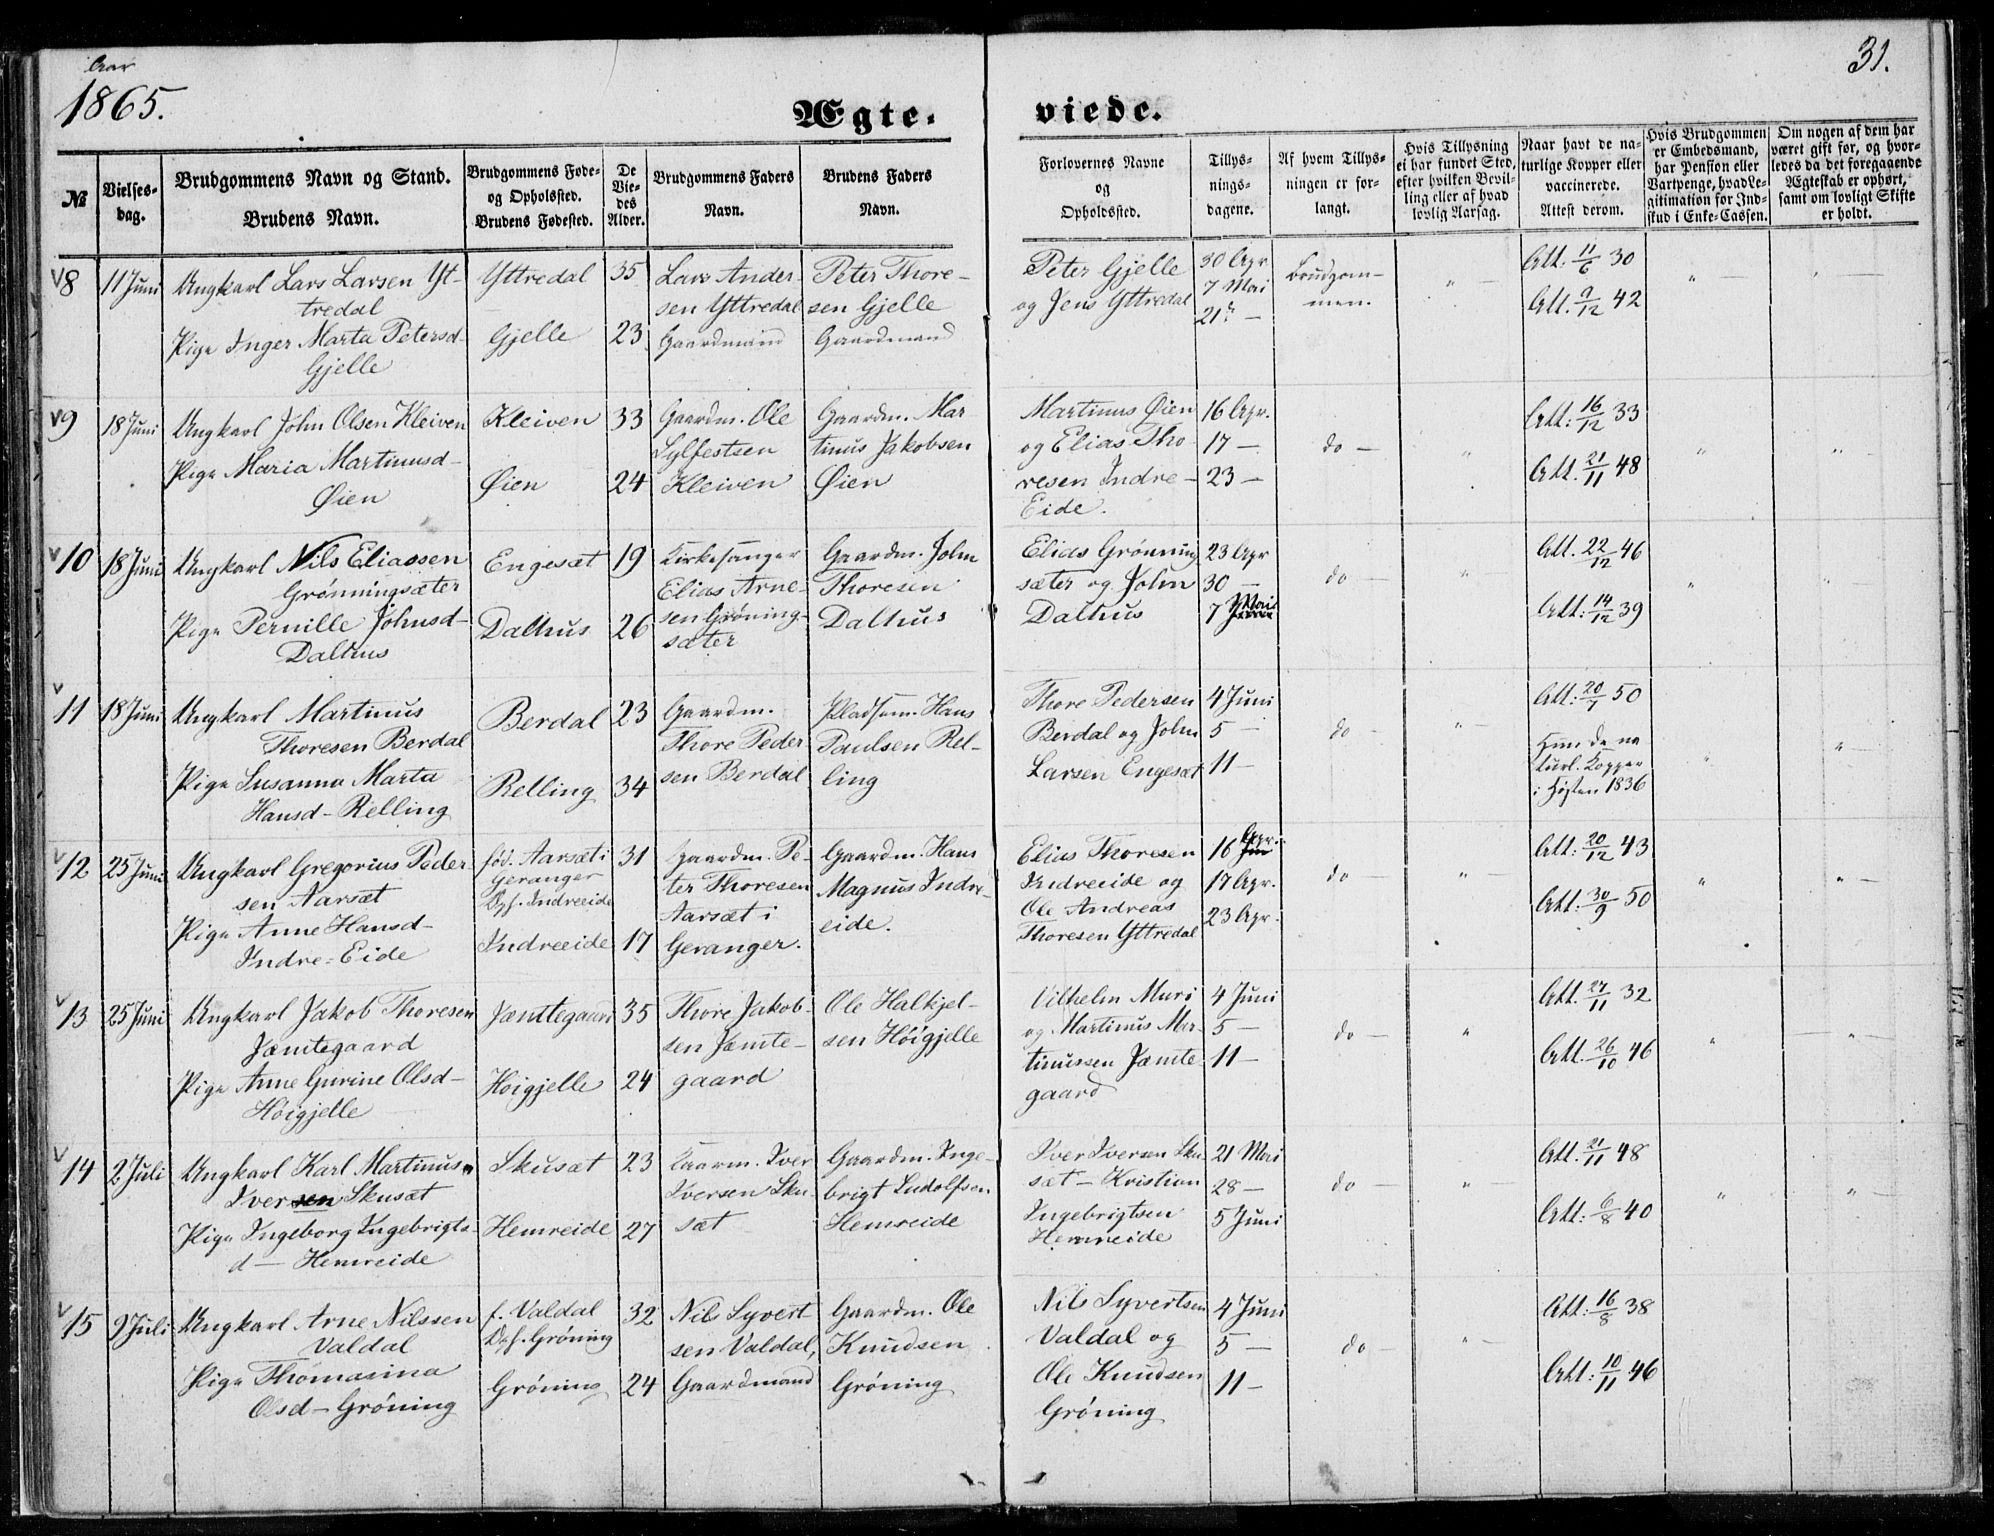 Aar
1865.
31.
Ægte-viede.
№
Vielses-dag.
Brudgommens Navn og Stand.
Brudens Navn.
Brudgommens Føde- og Opholdssted.
Brudens Fødested.
De Vie-des Alder.
Brudgommens Faders Navn.
Brudens Faders Navn.
Forlovernes Navne og Opholdssted.
Tillys-nings-dagene.
Af hvem Tillys-ningen er for-langt.
Hvis Tillysning ei har fundet Sted, efter hvilken Bevil-ling eller af hvad lovlig Aarsag.
Naar havt de na-turlige Kopper eller vaccinerede. Attest derom.
Hvis Brudgommen er Embedsmand, har Pension eller Vartpenge, hvad Le-gitimation for Ind-skud i Enke-Cassen.
Om nogen af dem har været gift før, og hvor-ledes da det foregaaende Ægteskab er ophørt, samt om lovligt Skifte er holdt.
8 11 Juni Ungkarl Lars Larsen Yt-
tredal
Pige Inger Marta Petersd-
Gjelle
Yttredal 35
Gjelle 23
Lars Ander-
sen Yttredal
Gaardmand
Peter Thore-
sen Gjelle
Gaardmand
Peter Gjelle
og Jens Yttredal
30 Apr
7 Mai
21 –
Brudgom-
men.
Att. 11/6 30
Att. 9/12 42
9 18 Juni Ungkarl John Olsen Kleiven
Pige Maria Martinusd-
Øien
Kleiven 33
Øien 24
Gaardm. Ole
Sylfestsen
Kleiven
Gaardm. Mar
tinus Jakobsen
Øien
Martinus Øien
og Elias Tho-
resen Indre-
Eide.
16 Apr.
17 –
23 –
do –
Att: 16/12 33
Att. 21/11 48
10 18 Juni Ungkarl Nils Eliassen
Grønningsæter
Pige Pernille Johnsd-
Dalhus
Engesæt 19
Dalhus 26
Kirkesanger
Elias Arne-
sen Grøning-
sæter
Gaardm. John
Thoresen
Dalhus
Elias Grønning
sæter og John
Dalhus
23 Apr
30 –
7 Mai
do –
Att. 22/12 46
Att: 14/12 39
11 18 Juni Ungkarl Martinus
Thoresen Berdal
Pige Susanna Marta
Hansd- Relling
Berdal 23
Relling 34
Gaardm.
Thore Peder
sen Berdal
Pladsm. Hans
Paulsen Rel-
ling
Thore Pedersen
Berdal og John
Larsen Engesæt
4 Juni
5 –
11 –
do –
Att: 20/7 50
Hun de na
turl. Kopper
i Høsten 1836
12 25 Juni Ungkarl Gregorius Peder
sen Aarsæt
Pige Anne Hansd-
Indre-Eide
fød. Aarsæt i
Geranger
Oph. Indreeide
Indreeide
31
17
Gaardm. Pe-
ter Thoresen
Aarsæt i
Geranger.
Gaardm. Hans
Magnus Indre-
eide.
Elias Thoresen
Indreeide og
Ole Andreas
Thoresen Yttredal
16 Apr.
17 Apr.
23 Apr.
do –
Att: 20/12 43
Att: 30/9 50
13 25 Juni Ungkarl Jakob Thoresen
Jæmtegaard
Pige Anne Gurine Olsd-
Høigjelle
Jæmtegaard 35
Høigjelle 24
Thore Jakob-
sen Jæmte-
gaard
Ole Halkjel-
sen Høigjelle
Vilhelm Muri
og Martinus Mar-
tinussen Jæmte-
gaard
4 Juni
5 –
11 –
do –
Att. 27/11 32
Att. 26/10 46
14 2 Juli Ungkarl Karl Martinus
Iversen Skusæt
Pige Ingeborg Ingebrigts-
d– Hemreide
Skusæt 23
Hemreide 27
Gaardm. Iver
Iversen Sku-
sæt
Gaardm. Inge-
brigt Ludolfsen
Hemreide
Iver Iversen Sku
sæt – Kristian
Ingebrigtsen
Hemreide
21 Mai
28 –
5 Juni
do –
Att. 21/11 48
Att: 6/8 40
15 9 Juli Ungkarl Arne Nilssen
Valdal
Pige Thomasina
Olsd- Grøning
f. Valdal
Oph. Grøning
Grøning
32
24
Nils Syvert
sen Valdal,
Gaardmand
Gaardm. Ole
Knudsen
Grøning
Nils Syvertsen
Valdal og
Ole Knudsen
Grøning
4 Juni
5 –
11 –
do
Att: 16/8 38
Att: 10/11 46